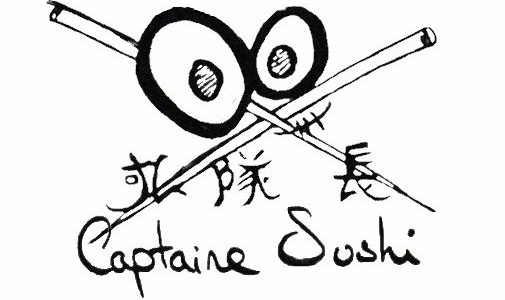 隊 長
Captaine Sushi